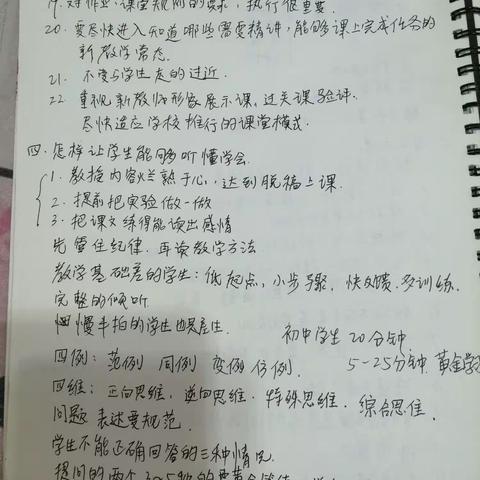 19. 对作业、课堂规则的要求、执行很重要.
20. 要尽快进入知道哪些需要精讲,能够课上完成任务的
新教学常态.
21. 不要与学生走的过近.
22. 重视新教师形象展示课、过关课验评.
尽快适应学校推行的课堂模式.
四. 怎样让学生能够听懂学会.
1. 教授内容烂熟于心,达到脱稿上课.
2. 提前把实验做一做
3. 把课文练得能读出感情
先管住纪律.再谈教学方法
教学基础差的学生:低起点,小步骤,快反馈.多训练.
完整的倾听
慢半拍的学生也是差生.
初中学生20分钟
四例:范例 同例 变例 仿例.
5-25分钟 黄金学
四维:正向思维、逆向思维、特殊思维、综合思维.
问题表述要规范.
学生不能正确回答的三种情况.
提问的两个3~5秒的